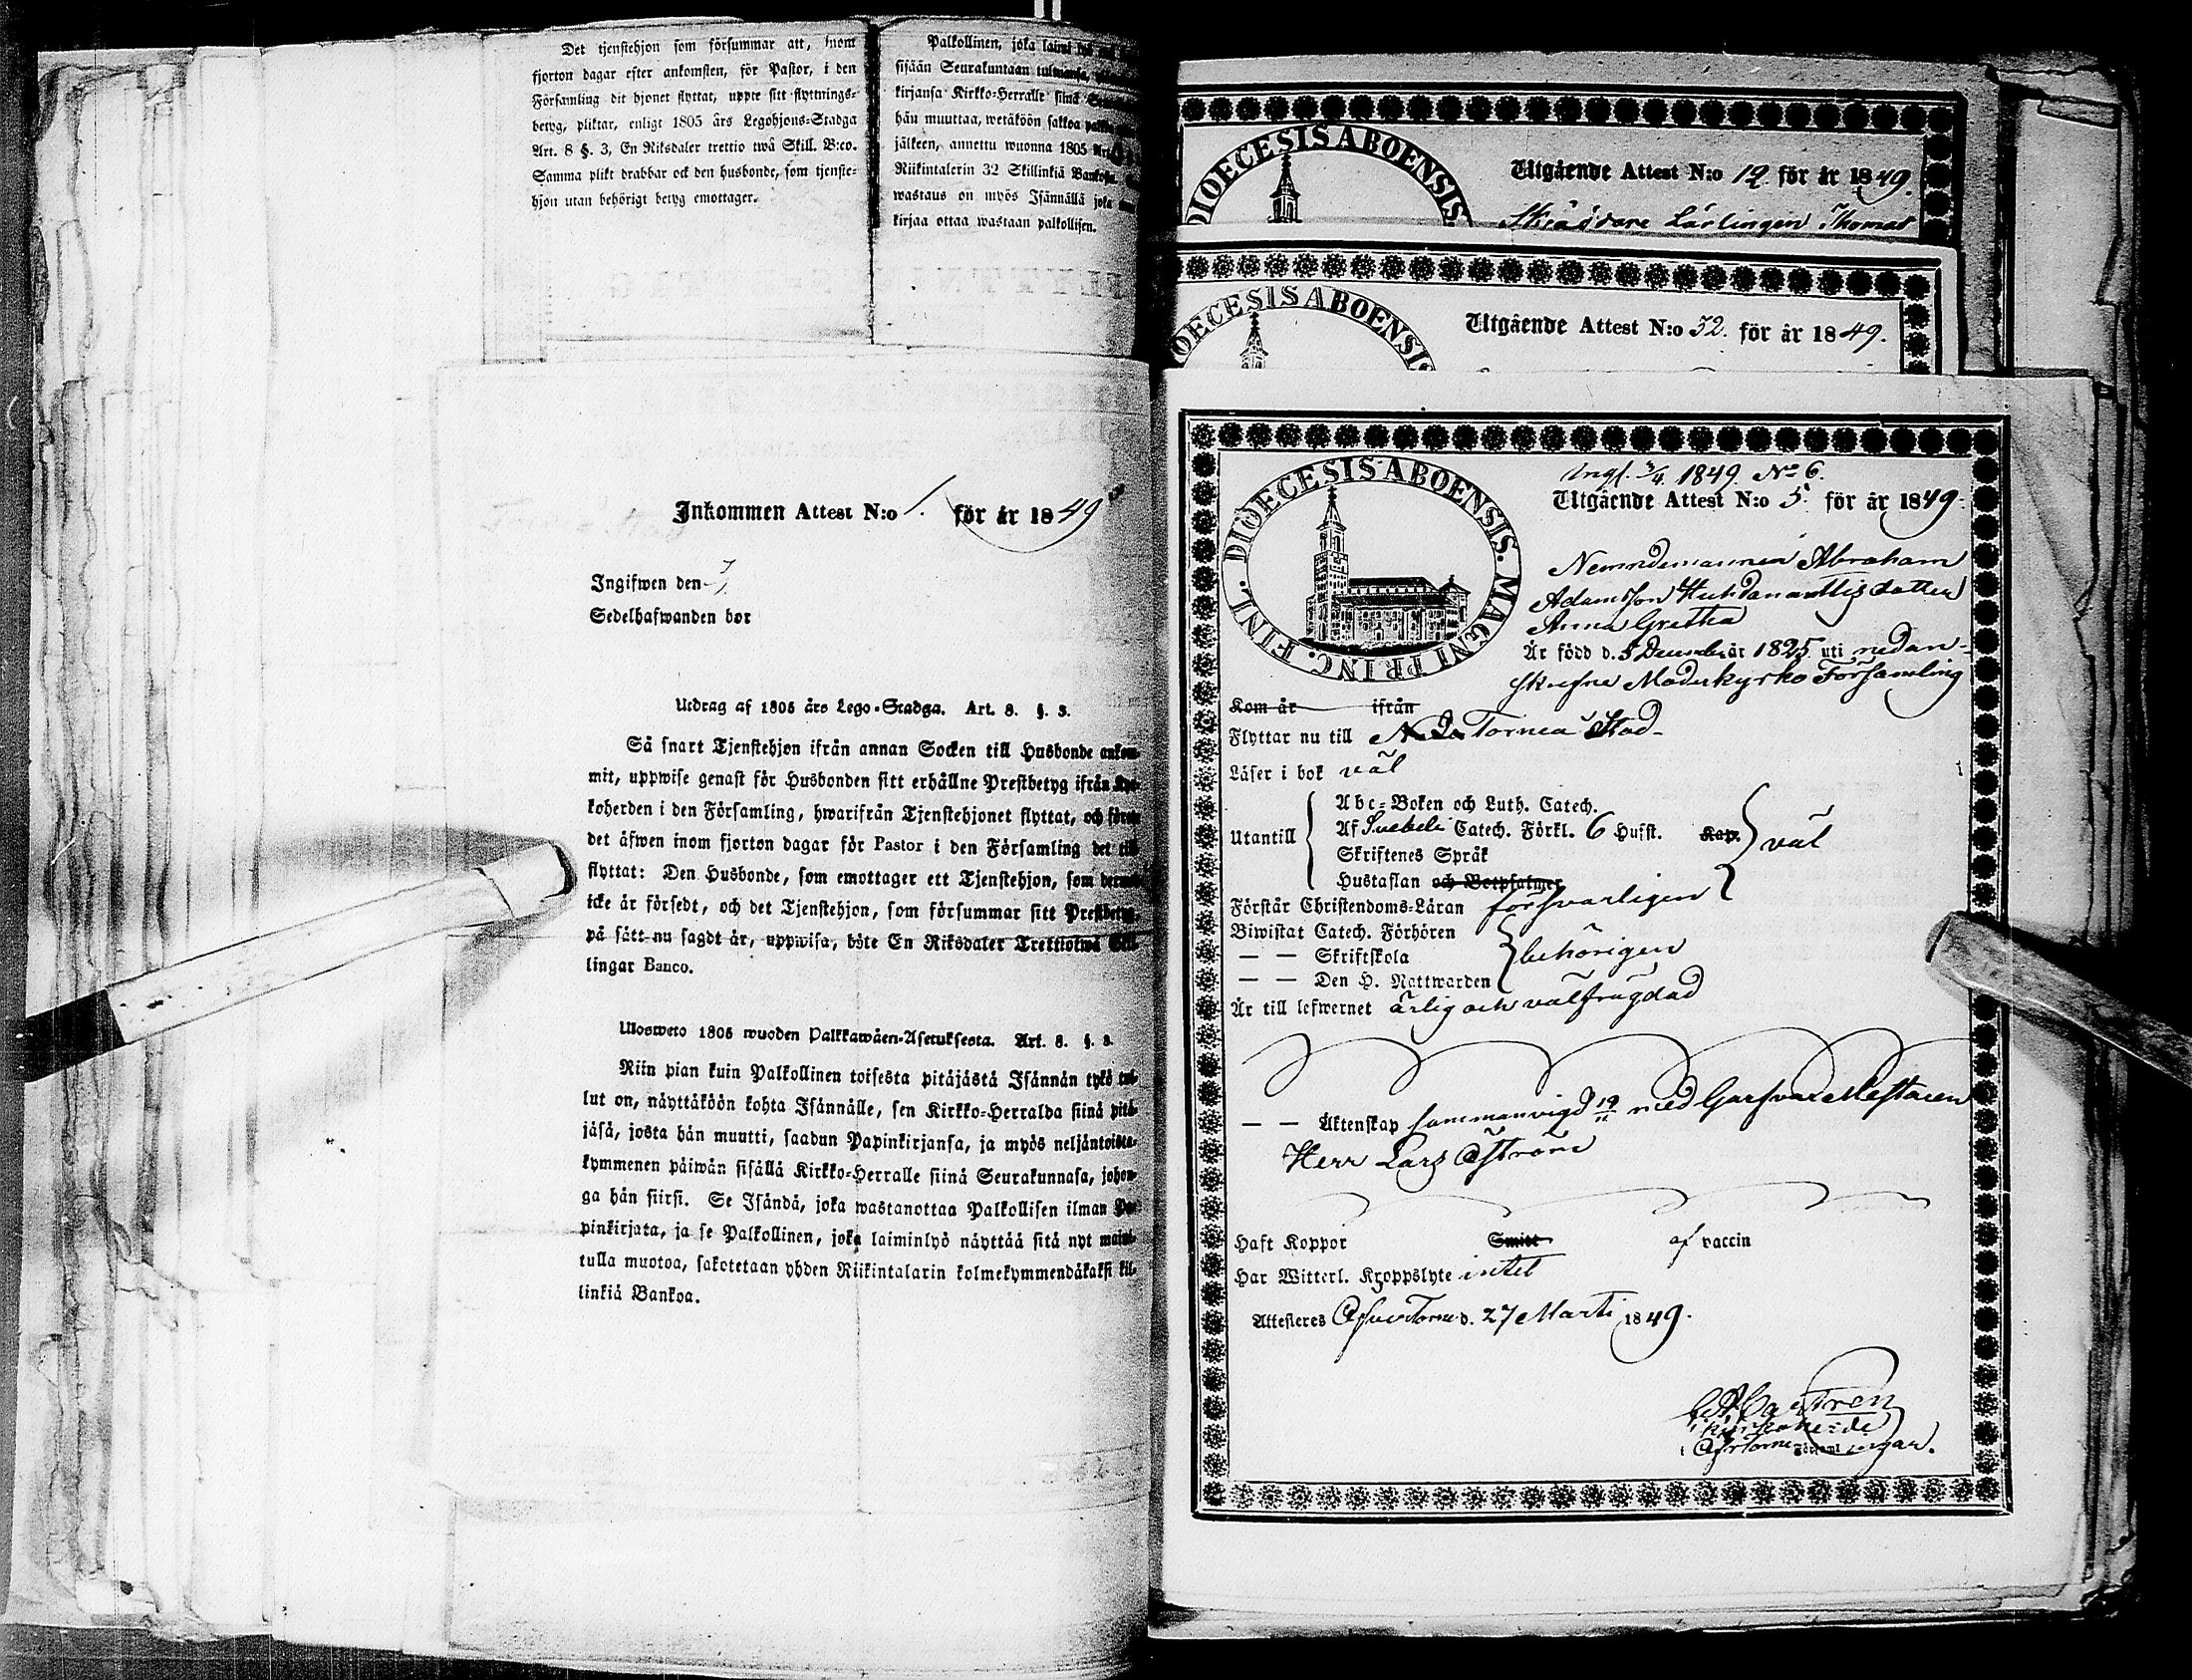 Det tjenstehjon som försummar att, inom
fjorton dagar efter ankomsten, för Pastor, i den
Församling dit hjonet flyttat, uppte sitt flyttnings-
betyg, pliktar, enligt 1805 års Legohjons-Stadga
Art. 8 §. 3, En Riksdaler trettio twå Skill. B:co.
Samma plikt drabbar ock den husbonde, som tjenste-
hjon utan behörigt betyg emottager.
Palkollinen, joka
sisään Seurakuntaan
kirjansa Kirkko-Herralle siinä
hän muuttaa, wetäköön sakkoa
jälkeen, annettu wuonna 1805
Riikintalerin 32 Skillinkiä Bankosa.
wastaus on myös Isännällä joka
kirjaa ottaa wastaan palkollisen.
Inkommen Attest N:o 1. för år 1849
Ingifwen den
Sedelhafwanden bor
Utdrag af 1805 års Lego-Stadga. Art. 8. §. 3.
Så snart Tjenstehjon ifrån annan Socken till Husbonde ankom-
mit, uppwise genast för Husbonden sitt erhållne Prestbetyg ifrån Kyr-
koherden i den Församling, hwarifrån Tjenstehjonet flyttat, och förete
det äfwen inom fjorton dagar för Pastor i den Församling det till
flyttat: Den Husbonde, som emottager ett Tjenstehjon, som dermed
icke är försedt, och det Tjenstehjon, som försummar sitt Prestbetyg,
på sätt nu sagdt är, uppwisa, böte En Riksdaler Trettiotwå Skil-
lingar Banco.
Ulosweto 1805 wuoden Palkkawäen-Asetuksesta. Art. 8. §. 3.
Niin pian kuin Palkollinen toisesta pitäjästä Isännän tykö tul-
lut on, näyttäköön kohta Isännälle, sen Kirkko-Herralda siinä pitä-
jäsä, josta hän muutti, saadun Papinkirjansa, ja myös neljäntoista-
kymmenen päiwän sisällä Kirkko-Herralle siinä Seurakunnasa, johon-
ga hän siirsi. Se Isändä, joka wastanottaa Palkollisen ilman Pa-
pinkirjata, ja se Palkollinen, joka laiminlyö näyttää sitä nyt maini-
tulla muotoa, sakotetaan yhden Riikintalarin kolmekymmendäkaksi kil-
linkiä Bankoa.
DIOECESIS ABOENSIS.
Utgående Attest N:o 12. för år 1849.
Lärlingen Thomas
DIOECESIS ABOENSIS
Utgående Attest N:o 32. för år 1849.
DIOECESIS ABOENSIS. MAGNI PRINC. FINL.
Ingf. 3/4 1849. No 6.
Utgående Attest N:o 5. för år 1849.
Nemndemannen Abraham
Adamsson dotter
Anna Gretha
Är född d. 5 December år 1825 uti nedan-
skrefne Moderkyrko Församling
Kom år ifrån
Flyttar nu till Torneå Stad.
Läser i bok väl
Utantill
Abc-Boken och Luth. Catech.
Af Svebeli Catech. Förkl. 6 Hufst. Kap.
väl
Skriftenes Språk
Hustaflan och Botpsalmer
Förstår Christendoms-Läran försvarligen
Biwistat Catech. Förhören
— — Skriftskola behörigen
— — Den H. Nattwarden
Är till lefwernet ärlig och välfrägdad
— — Äktenskap sammanvigd med Garfvare Mestaren
Herr Lars Åström
Haft Koppor Smitt af vaccin
Har Witterl. Kroppslyte intet
Attesteres Öfver Torne d. 27 Marti 1849.
Castren
Kyrkoherde
i Öfver Torne Församlingar.